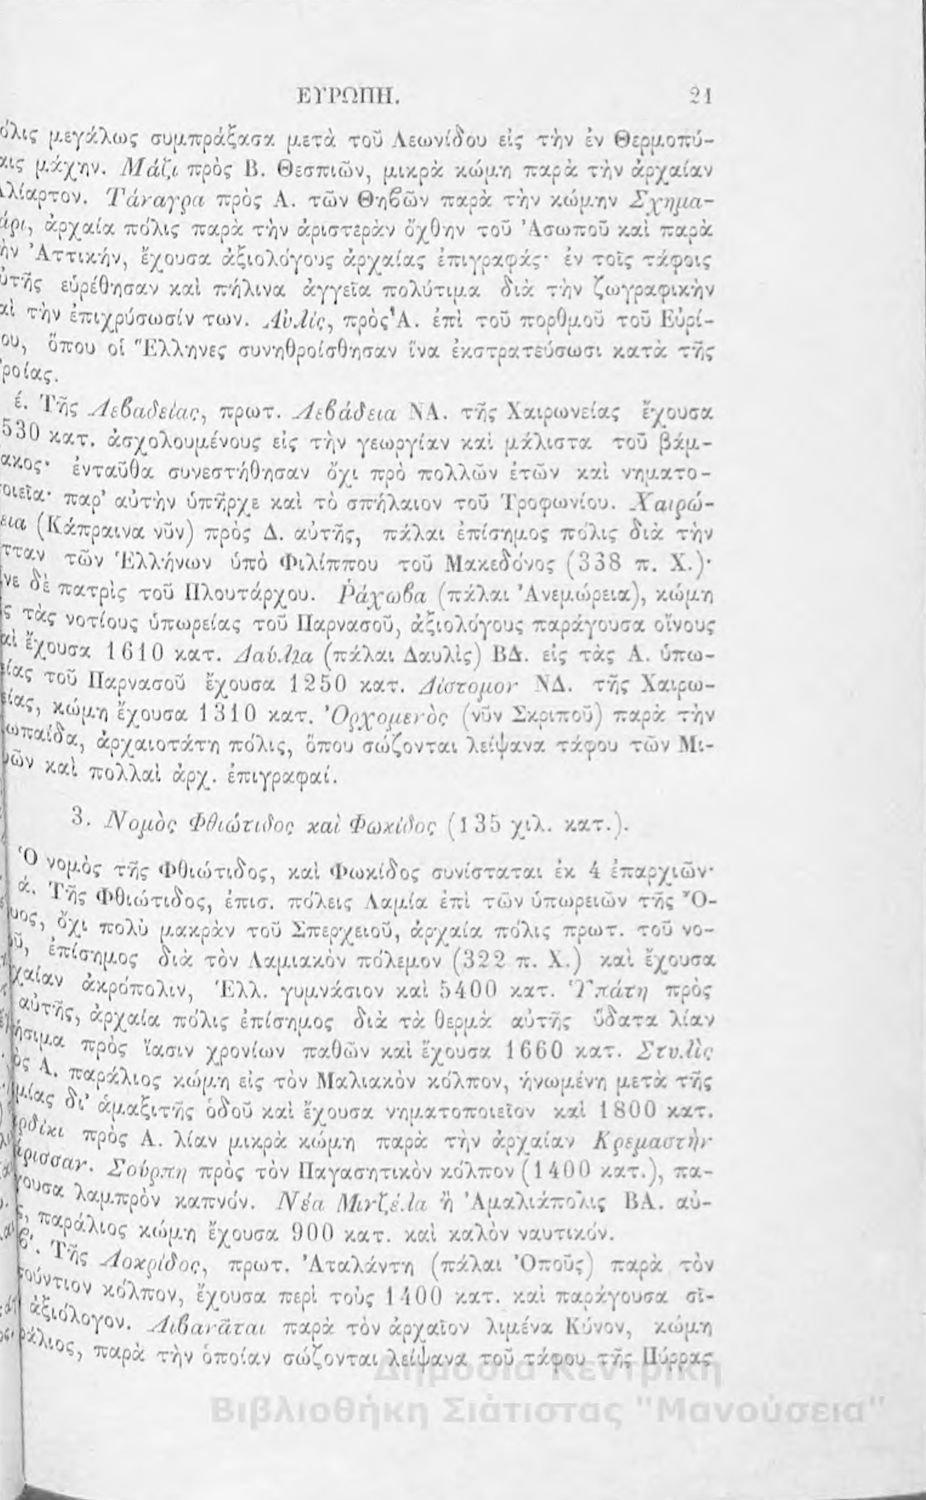 ΕΥΡΩΠΗ. 21
όλις μεγάλως συμπράξασα μετὰ τοῦ Λεωνίδου εἰς τὴν ἐν Θερμοπύ-
αις μάχην. Μάζι πρὸς Β. Θεσπιῶν, μικρὰ κώμη παρὰ τὴν ἀρχαίαν
λίαρτον. Τάναγρα πρὸς Α. τῶν Θηβῶν παρὰ τὴν κώμην Σχημα-
άρι, ἀρχαία πόλις παρὰ τὴν ἀριστερὰν ὄχθην τοῦ Ἀσωποῦ καὶ παρὰ
ὴν Ἀττικήν, ἔχουσα ἀξιολόγους ἀρχαίας ἐπιγραφάς· ἐν τοῖς τάφοις
ὐτῆς εὑρέθησαν καὶ πήλινα ἀγγεῖα πολύτιμα διὰ τὴν ζωγραφικὴν
αὶ τὴν ἐπιχρύσωσίν των. Αὐλίς, πρὸς Α. ἐπὶ τοῦ πορθμοῦ τοῦ Εὐρί-
ου, ὅπου οἱ Ἕλληνες συνηθροίσθησαν ἵνα ἐκστρατεύσωσι κατὰ τῆς
ροίας.
έ. Τῆς Λεβαδείας, πρωτ. Λεβάδεια ΝΑ. τῆς Χαιρωνείας ἔχουσα
530 κατ. ἀσχολουμένους εἰς τὴν γεωργίαν καὶ μάλιστα τοῦ βάμ-
ακος· ἐνταῦθα συνεστήθησαν ὄχι πρὸ πολλῶν ἐτῶν καὶ νηματο-
οιεῖα· παρ' αὐτὴν ὑπῆρχε καὶ τὸ σπήλαιον τοῦ Τροφωνίου. Χαιρώ-
εια (Κάπραινα νῦν) πρὸς Δ. αὐτῆς, πάλαι ἐπίσημος πόλις διὰ τὴν
τταν τῶν Ἑλλήνων ὑπὸ Φιλίππου τοῦ Μακεδόνος (338 π. Χ.)·
νε δὲ πατρὶς τοῦ Πλουτάρχου. Ῥάχωβα (πάλαι Ἀνεμώρεια), κώμη
ς τὰς νοτίους ὑπωρείας τοῦ Παρνασοῦ, ἀξιολόγους παράγουσα οἴνους
αὶ ἔχουσα 1610 κατ. Δαύλια (πάλαι Δαυλὶς) ΒΔ. εἰς τὰς Α. ὑπω-
ίας τοῦ Παρνασοῦ ἔχουσα 1250 κατ. Δίστομον ΝΔ. τῆς Χαιρω-
είας, κώμη ἔχουσα 1310 κατ. Ὀρχομενὸς (νῦν Σκριποῦ) παρὰ τὴν
ωπαΐδα, ἀρχαιοτάτη πόλις, ὅπου σώζονται λείψανα τάφου τῶν Μι-
υῶν καὶ πολλαὶ ἀρχ. ἐπιγραφαί.
3. Νομὸς Φθιώτιδος καὶ Φωκίδος (135 χιλ. κατ.).
Ὁ νομὸς τῆς Φθιώτιδος, καὶ Φωκίδος συνίσταται ἐκ 4 ἐπαρχιῶν·
ά. Τῆς Φθιώτιδος, ἐπισ. πόλεις Λαμία ἐπὶ τῶν ὑπωρειῶν τῆς Ὄ-
υος, ὄχι πολὺ μακρὰν τοῦ Σπερχειοῦ, ἀρχαία πόλις πρωτ. τοῦ νο-
οῦ, ἐπίσημος διὰ τὸν Λαμιακὸν πόλεμον (322 π. Χ.) καὶ ἔχουσα
χαίαν ἀκρόπολιν, Ἑλλ. γυμνάσιον καὶ 5400 κατ. Ὑπάτη πρὸς
αὐτῆς, ἀρχαία πόλις ἐπίσημος διὰ τὰ θερμὰ αὐτῆς ὕδατα λίαν
ήσιμα πρὸς ἴασιν χρονίων παθῶν καὶ ἔχουσα 1660 κατ. Στυλὶς
ὸς Α. παράλιος κώμη εἰς τὸν Μαλιακὸν κόλπον, ἡνωμένη μετὰ τῆς
μίας δι' ἁμαξιτῆς ὁδοῦ καὶ ἔχουσα νηματοποιεῖον καὶ 1800 κατ.
ρδίκι πρὸς Α. λίαν μικρὰ κώμη παρὰ τὴν ἀρχαίαν Κρεμαστὴν
άρισσαν. Σούρπη πρὸς τὸν Παγασητικὸν κόλπον (1400 κατ.), πα-
ουσα λαμπρὸν καπνόν. Νέα Μιντζέλα ἢ Ἀμαλιάπολις ΒΑ. αὐ-
ς, παράλιος κώμη ἔχουσα 900 κατ. καὶ καλὸν ναυτικόν.
β΄. Τῆς Λοκρίδος, πρωτ. Ἀταλάντη (πάλαι Ὀποῦς) παρὰ τὸν
ούντιον κόλπον, ἔχουσα περὶ τοὺς 1400 κατ. καὶ παράγουσα σῖ-
ἀξιόλογον. Λιβανᾶται παρὰ τὸν ἀρχαῖον λιμένα Κύνον, κώμη
ράλιος, παρὰ τὴν ὁποίαν σώζονται λείψανα τοῦ τάφου τῆς Πύρρας
Δημόσια Κεντρική
Βιβλιοθήκη Σιάτιστας "Μανούσεια"